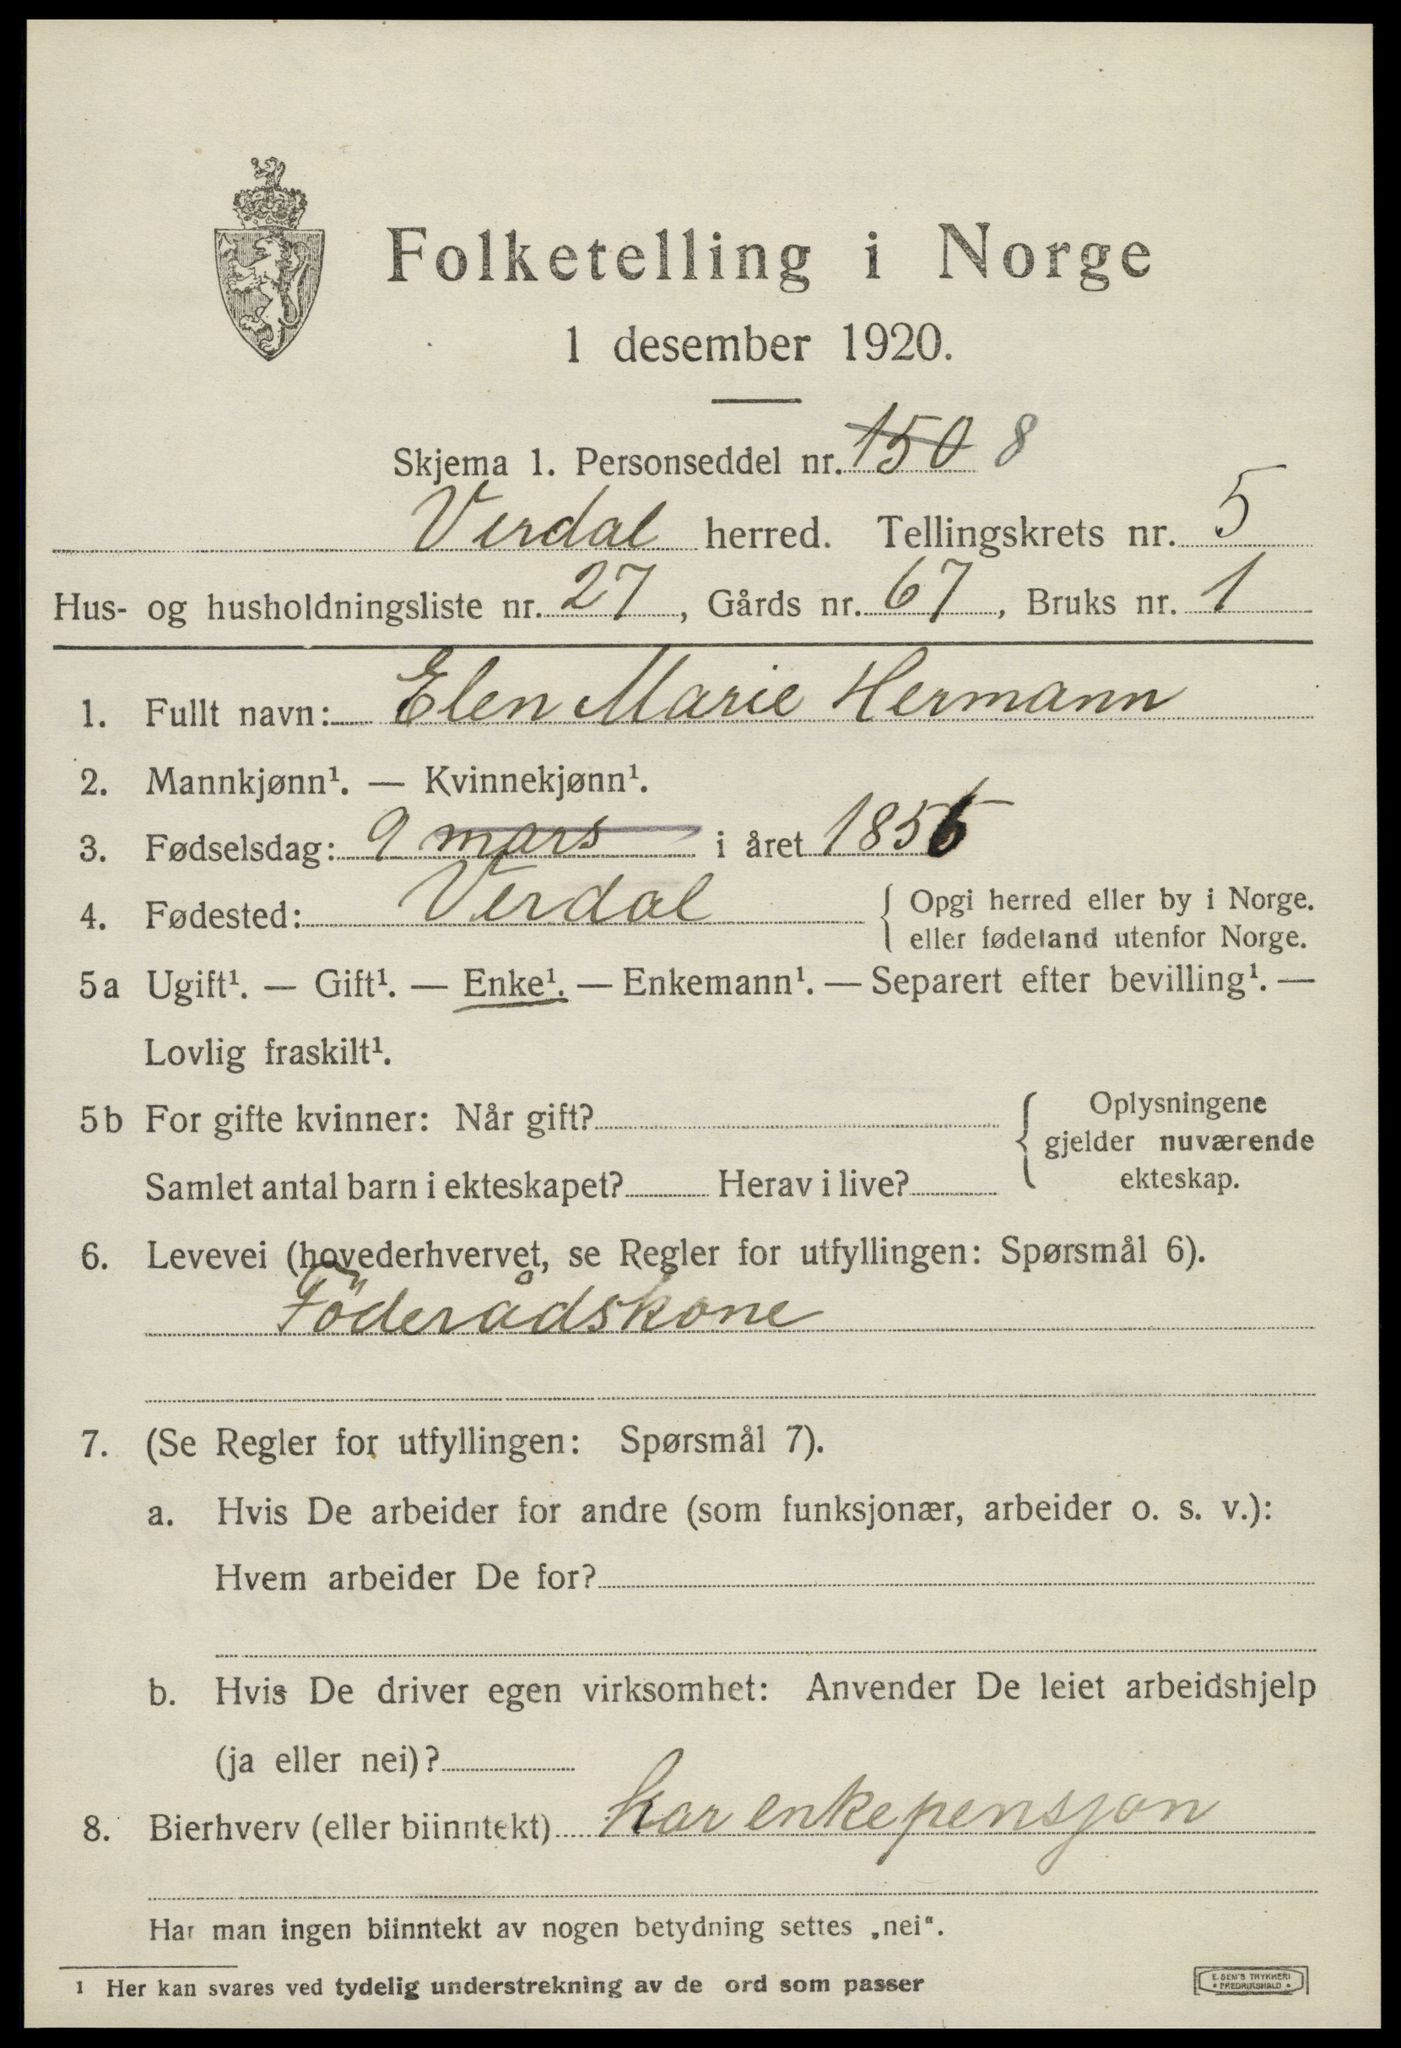 Folketelling i Norge
1 desember 1920.
Skjema 1. Personseddel nr. 150 8
Verdal herred. Tellingskrets nr. 5
Hus- og husholdningsliste nr. 27, Gårds nr. 67, Bruks nr. 1
1. Fullt navn: Elen Marie Hermann
2. Mannkjønn¹. — Kvinnekjønn¹.
3. Fødselsdag: 9 mars i året 1856
4. Fødested: Verdal { Opgi herred eller by i Norge.
eller fødeland utenfor Norge.
5a Ugift¹. — Gift¹. — Enke¹. — Enkemann¹. — Separert efter bevilling¹. —
Lovlig fraskilt¹.
5b For gifte kvinner: Når gift? { Oplysningene
gjelder nuværende
ekteskap.
Samlet antal barn i ekteskapet? Herav i live?
6. Levevei (hovederhvervet, se Regler for utfyllingen: Spørsmål 6).
Föderådskone
7. (Se Regler for utfyllingen: Spørsmål 7).
a. Hvis De arbeider for andre (som funksjonær, arbeider o. s. v.):
Hvem arbeider De for?
b. Hvis De driver egen virksomhet: Anvender De leiet arbeidshjelp
(ja eller nei)?
8. Bierhverv (eller biinntekt) har enkepensjon
Har man ingen biinntekt av nogen betydning settes „nei“.
1 Her kan svares ved tydelig understrekning av de ord som passer
E. SEM'S TRYKKERI
• FREDRIKSHALD •